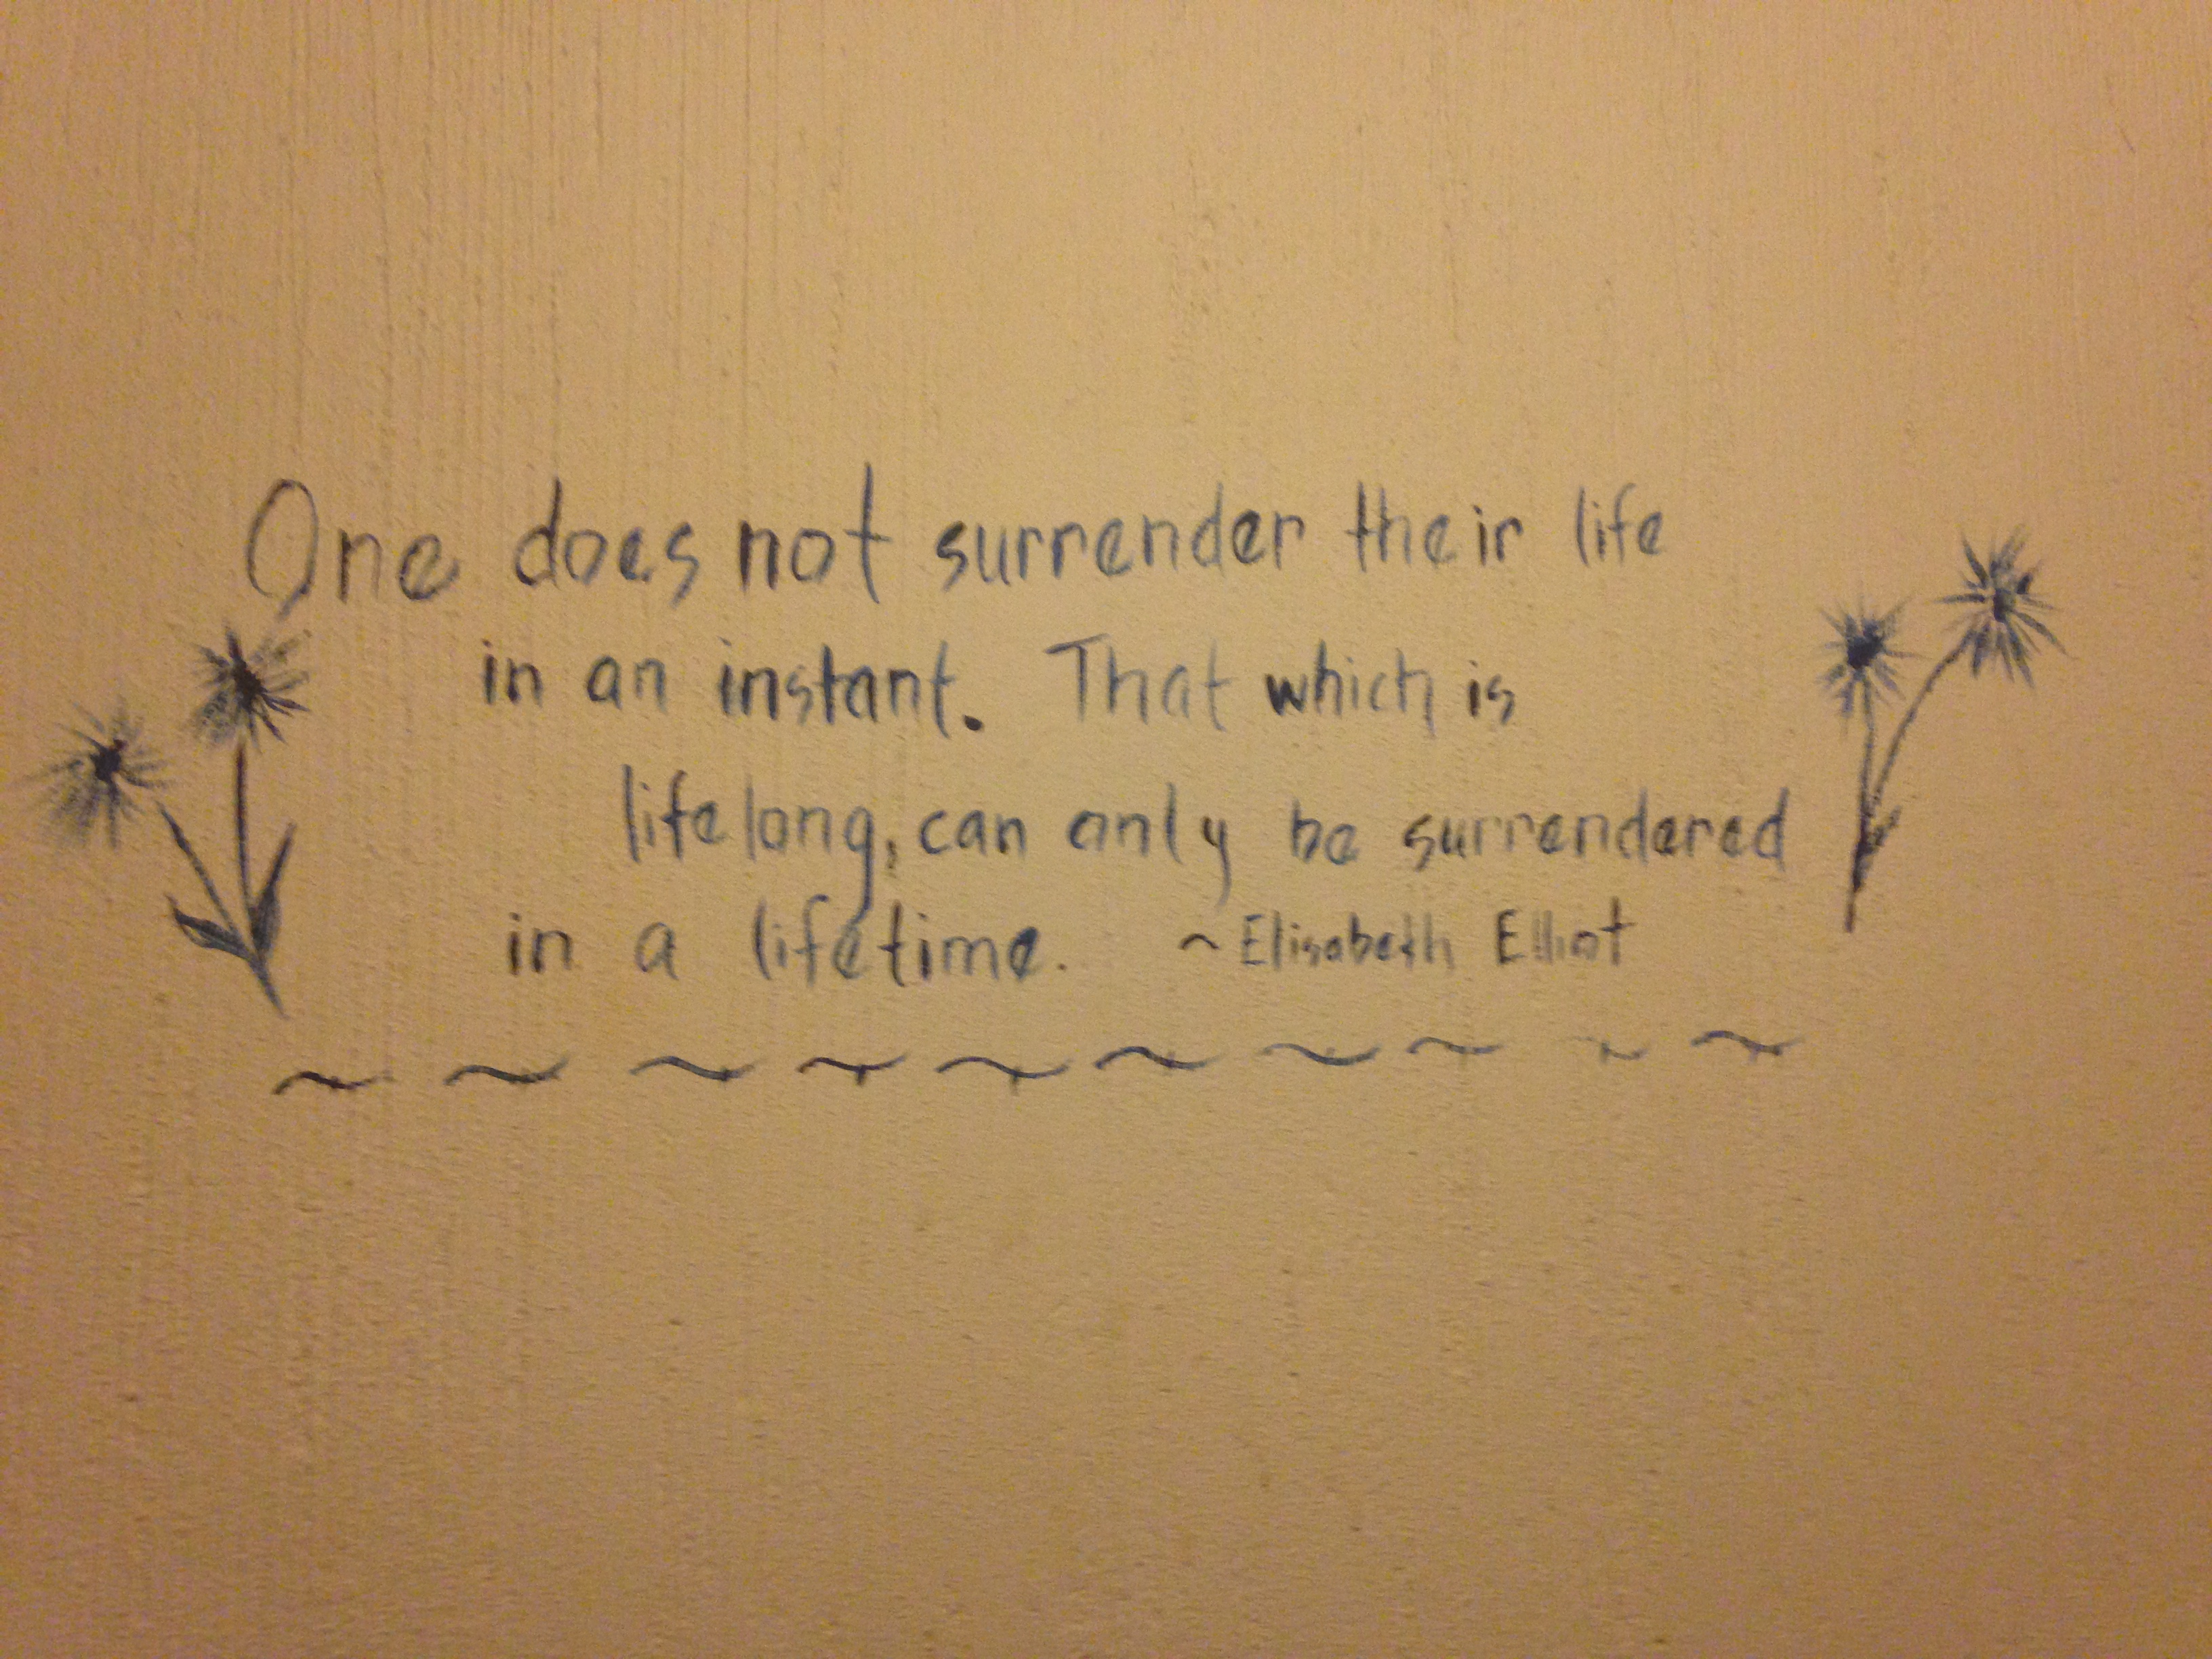 One does not surrender their life
in an instant. That which is
lifelong, can only be surrendered
in a lifetime. ~Elisabeth Elliot
~ ~ ~ ~ ~ ~ ~ ~ ~ ~